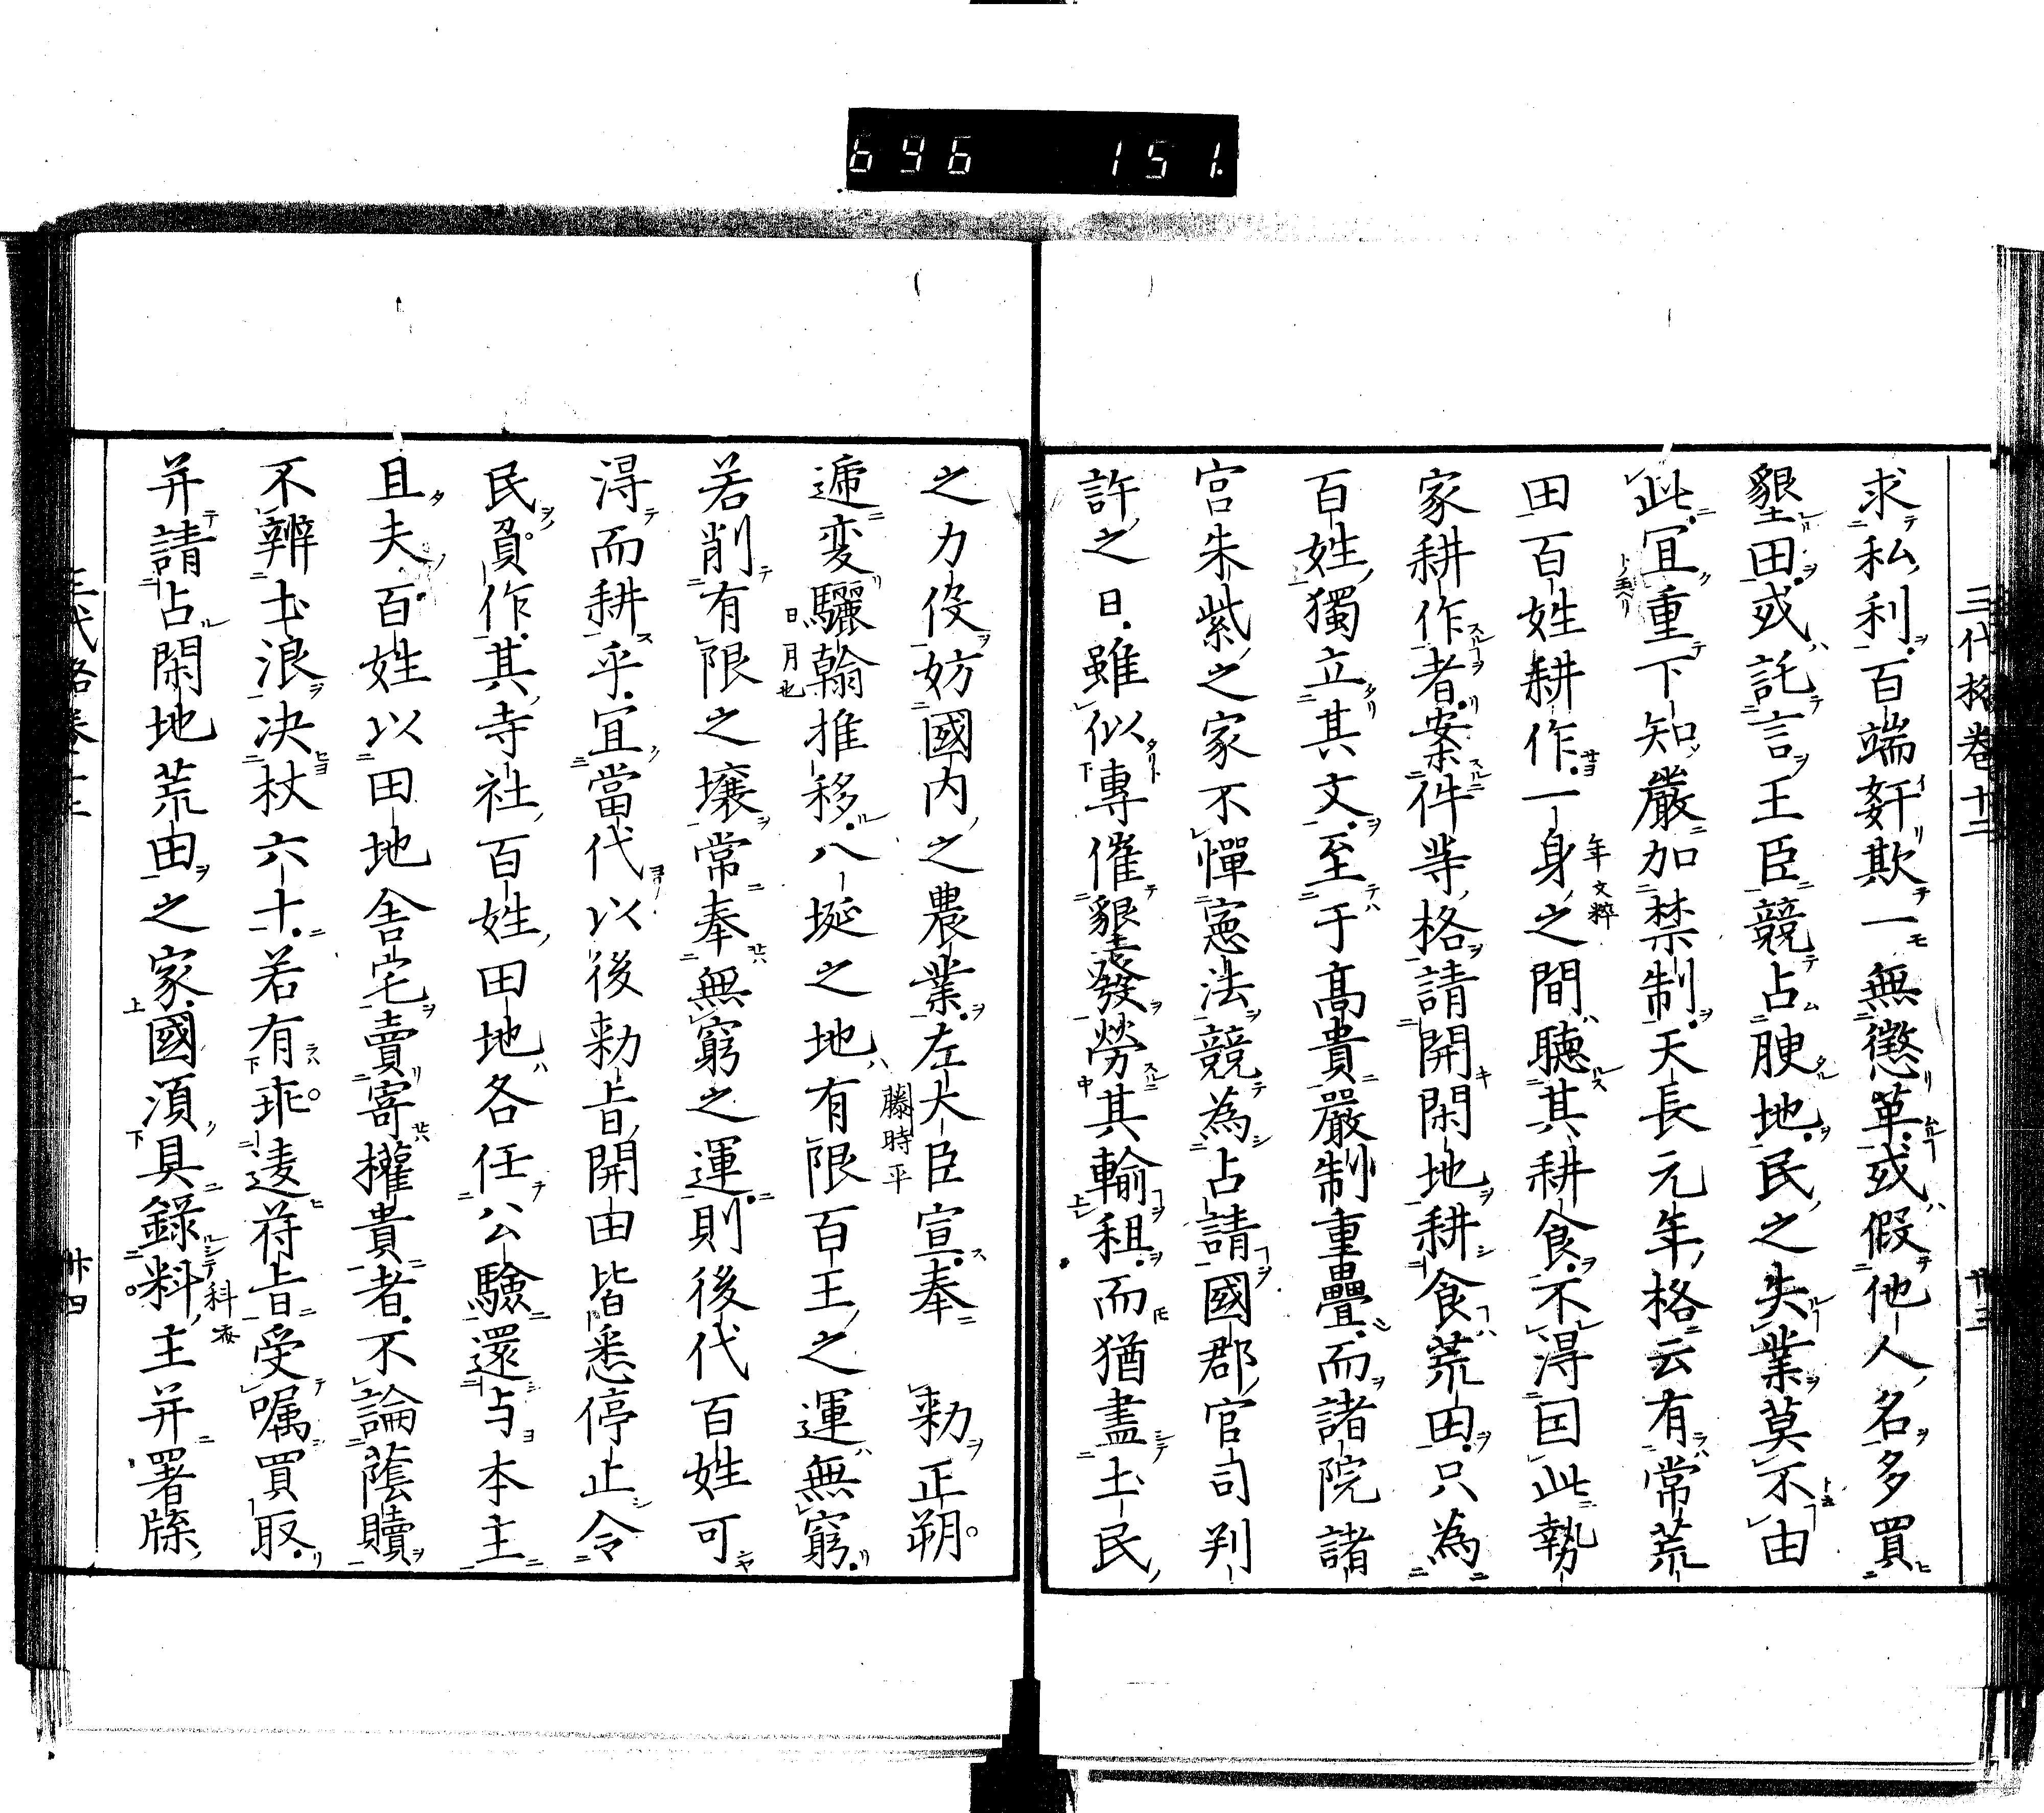 696 151.
三代格卷十二
求私利百端奸欺一無懲革或假他人名多買
墾田或託言王臣競占腴地民之失業莫不由
此宜重下知嚴加禁制天長元年格云有常荒
田百姓耕作一身之間聴其耕食不得因此勢
年文粹
家耕作者案件等格請開閑地耕食荒田只為
百姓獨立其文至于髙貴嚴制重疊而諸院諸
宮朱紫之家不憚憲法競為占請國郡官司判
許之日雖似專催墾發勞其輸租而猶盡土民
之力役妨國内之農業左大臣宣奉 勅正朔
藤時平
遞変驪翰推移八埏之地有限百王之運無窮
日月也
若削有限之壌常奉無窮之運則後代百姓可
得而耕乎宜當代以後勅旨開田皆悉停止令
民負作其寺社百姓田地各任公驗還与本主
且夫百姓以田地舎宅賣寄權貴者不論蔭贖
不辨土浪决杖六十若有乖違符旨受嘱買取
并請占閑地荒田之家國湏具錄料主并署牒
三代格卷十二 廿四